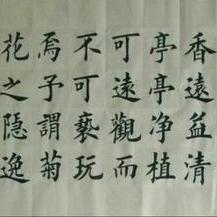 香遠益清
亭亭净植
可遠觀而
不可褻玩
焉予謂菊
花之隱逸